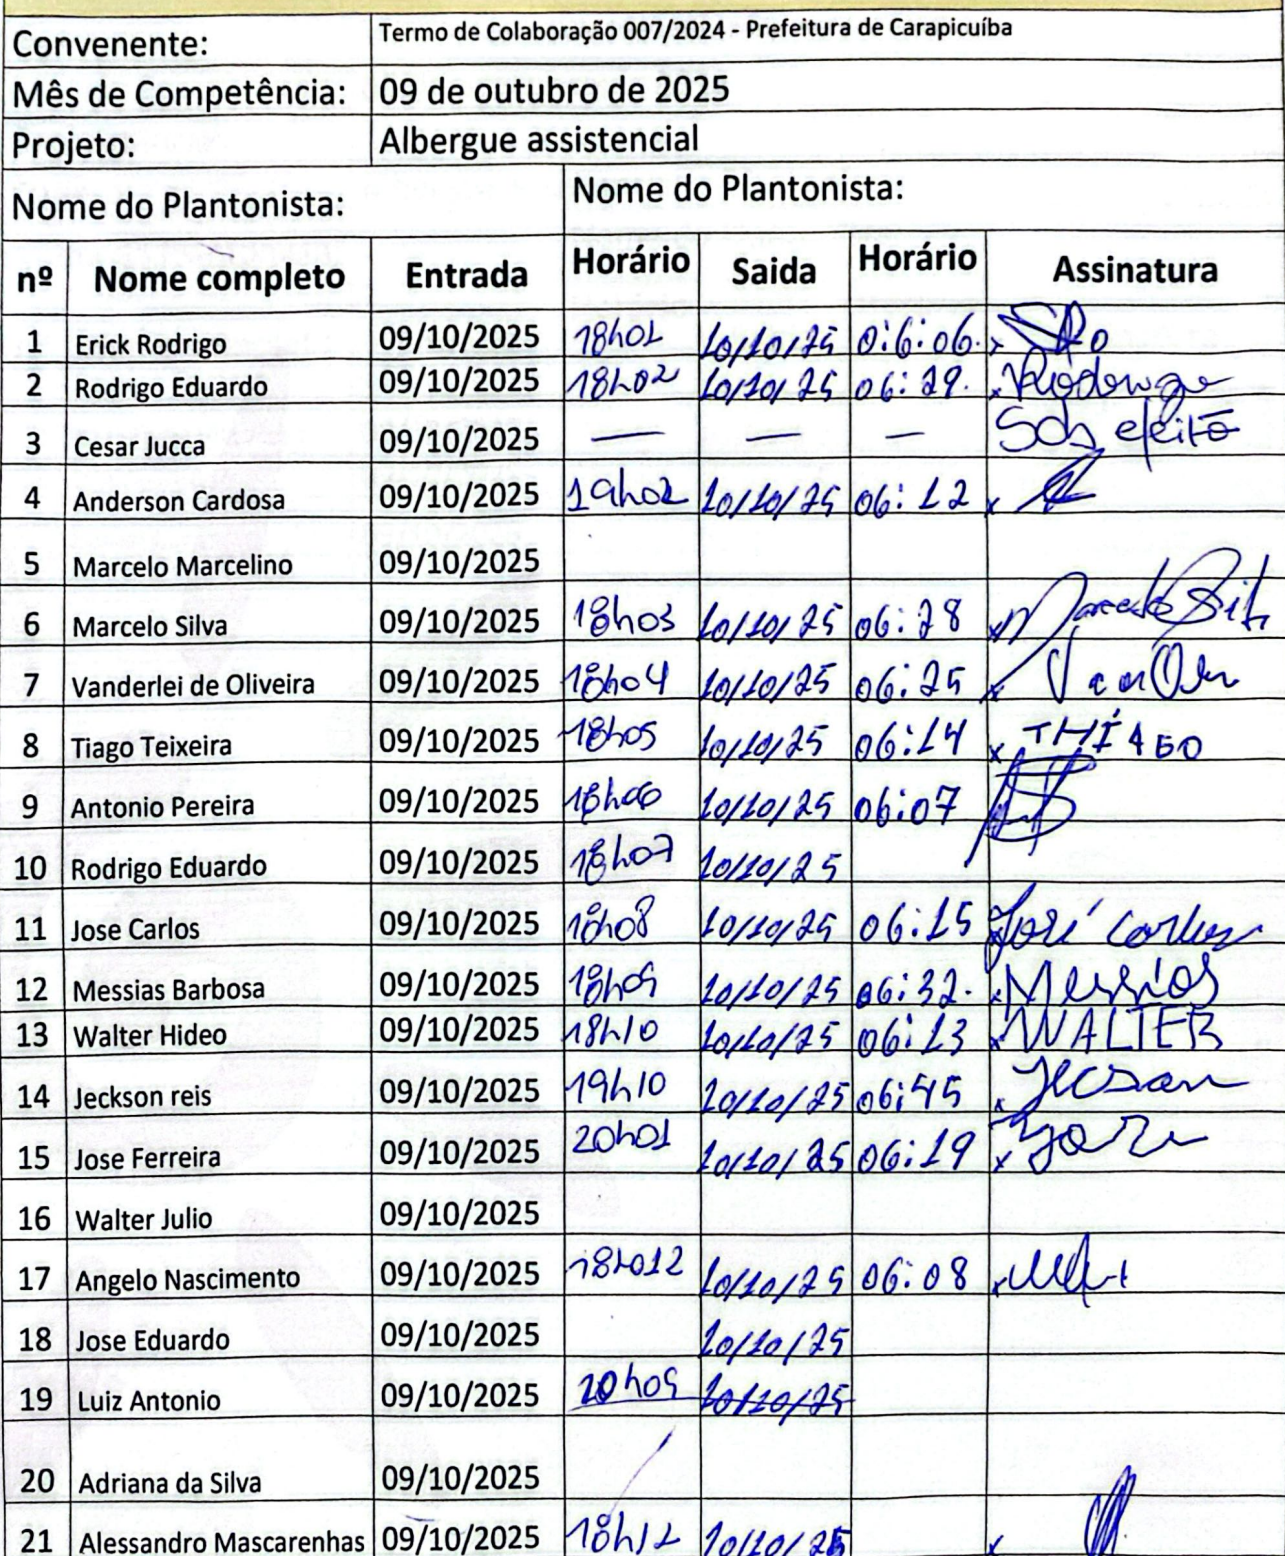 Convenente: Termo de Colaboração 007/2024 - Prefeitura de Carapicuíba
Mês de Competência: 09 de outubro de 2025
Projeto: Albergue assistencial
Nome do Plantonista: Nome do Plantonista:
nº Nome completo Entrada Horário Saida Horário Assinatura
1 Erick Rodrigo 09/10/2025 18h01 10/10/25 0:6:06.
2 Rodrigo Eduardo 09/10/2025 18h02 10/10/25 06:29. x Rodrigo
3 Cesar Jucca 09/10/2025 — — — efeito
4 Anderson Cardosa 09/10/2025 19h02 10/10/25 06:12 x
5 Marcelo Marcelino 09/10/2025
6 Marcelo Silva 09/10/2025 18h03 10/10/25 06:28 x Marcelo Silv
7 Vanderlei de Oliveira 09/10/2025 18h04 10/10/25 06:25 x
8 Tiago Teixeira 09/10/2025 18h05 10/10/25 06:14 x THÍAGO
9 Antonio Pereira 09/10/2025 18h06 10/10/25 06:07
10 Rodrigo Eduardo 09/10/2025 18h07 10/10/25
11 Jose Carlos 09/10/2025 18h08 10/10/25 06:15 x José Carlos
12 Messias Barbosa 09/10/2025 18h09 10/10/25 06:32. x Messias
13 Walter Hideo 09/10/2025 18h10 10/10/25 06:13 x WALTER
14 Jeckson reis 09/10/2025 19h10 10/10/25 06:45 x Jecson
15 Jose Ferreira 09/10/2025 20h01 10/10/25 06:19 x
16 Walter Julio 09/10/2025
17 Angelo Nascimento 09/10/2025 18h012 10/10/25 06:08 x
18 Jose Eduardo 09/10/2025 10/10/25
19 Luiz Antonio 09/10/2025 20h09 10/10/25
20 Adriana da Silva 09/10/2025
21 Alessandro Mascarenhas 09/10/2025 18h12 10/10/25 x